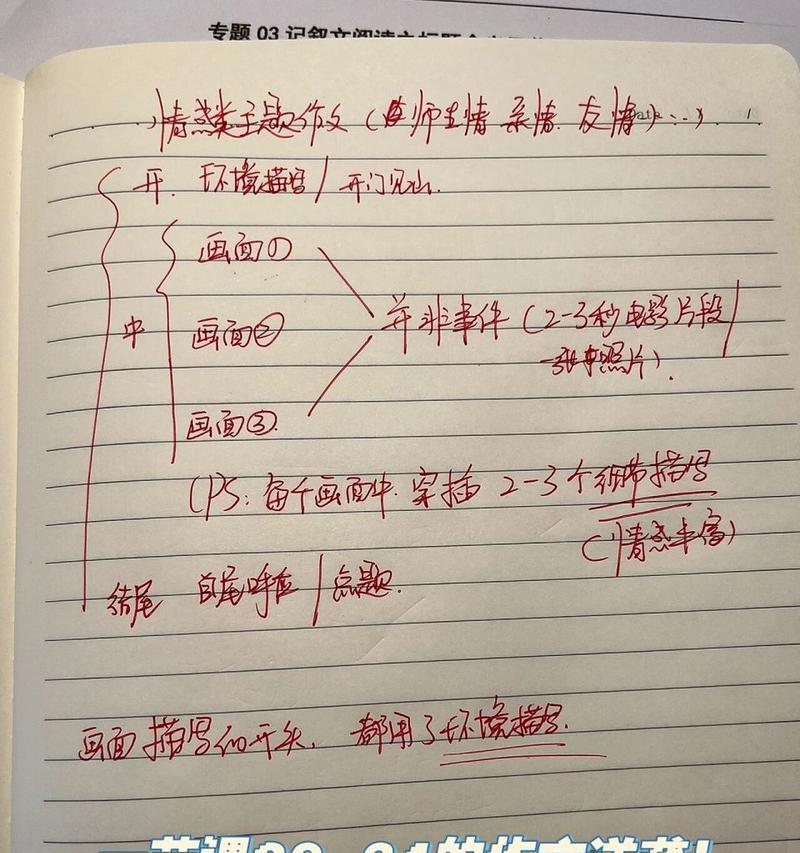 专题 03 记叙文阅读之标题
情感类主题作文（师生情 亲情 友情）...
开. 环境描写 / 开门见山.
画面①
中 画面② 并非事件（2-3秒电影片段/
一张照片）.
画面③.
（PS: 每个画面中. 穿插 2-3个细节描写
（情感丰富）
结尾 首尾呼应 / 点题.
画面描写的开头. 都用了环境描写.
一节课20-24的作文逆袭!